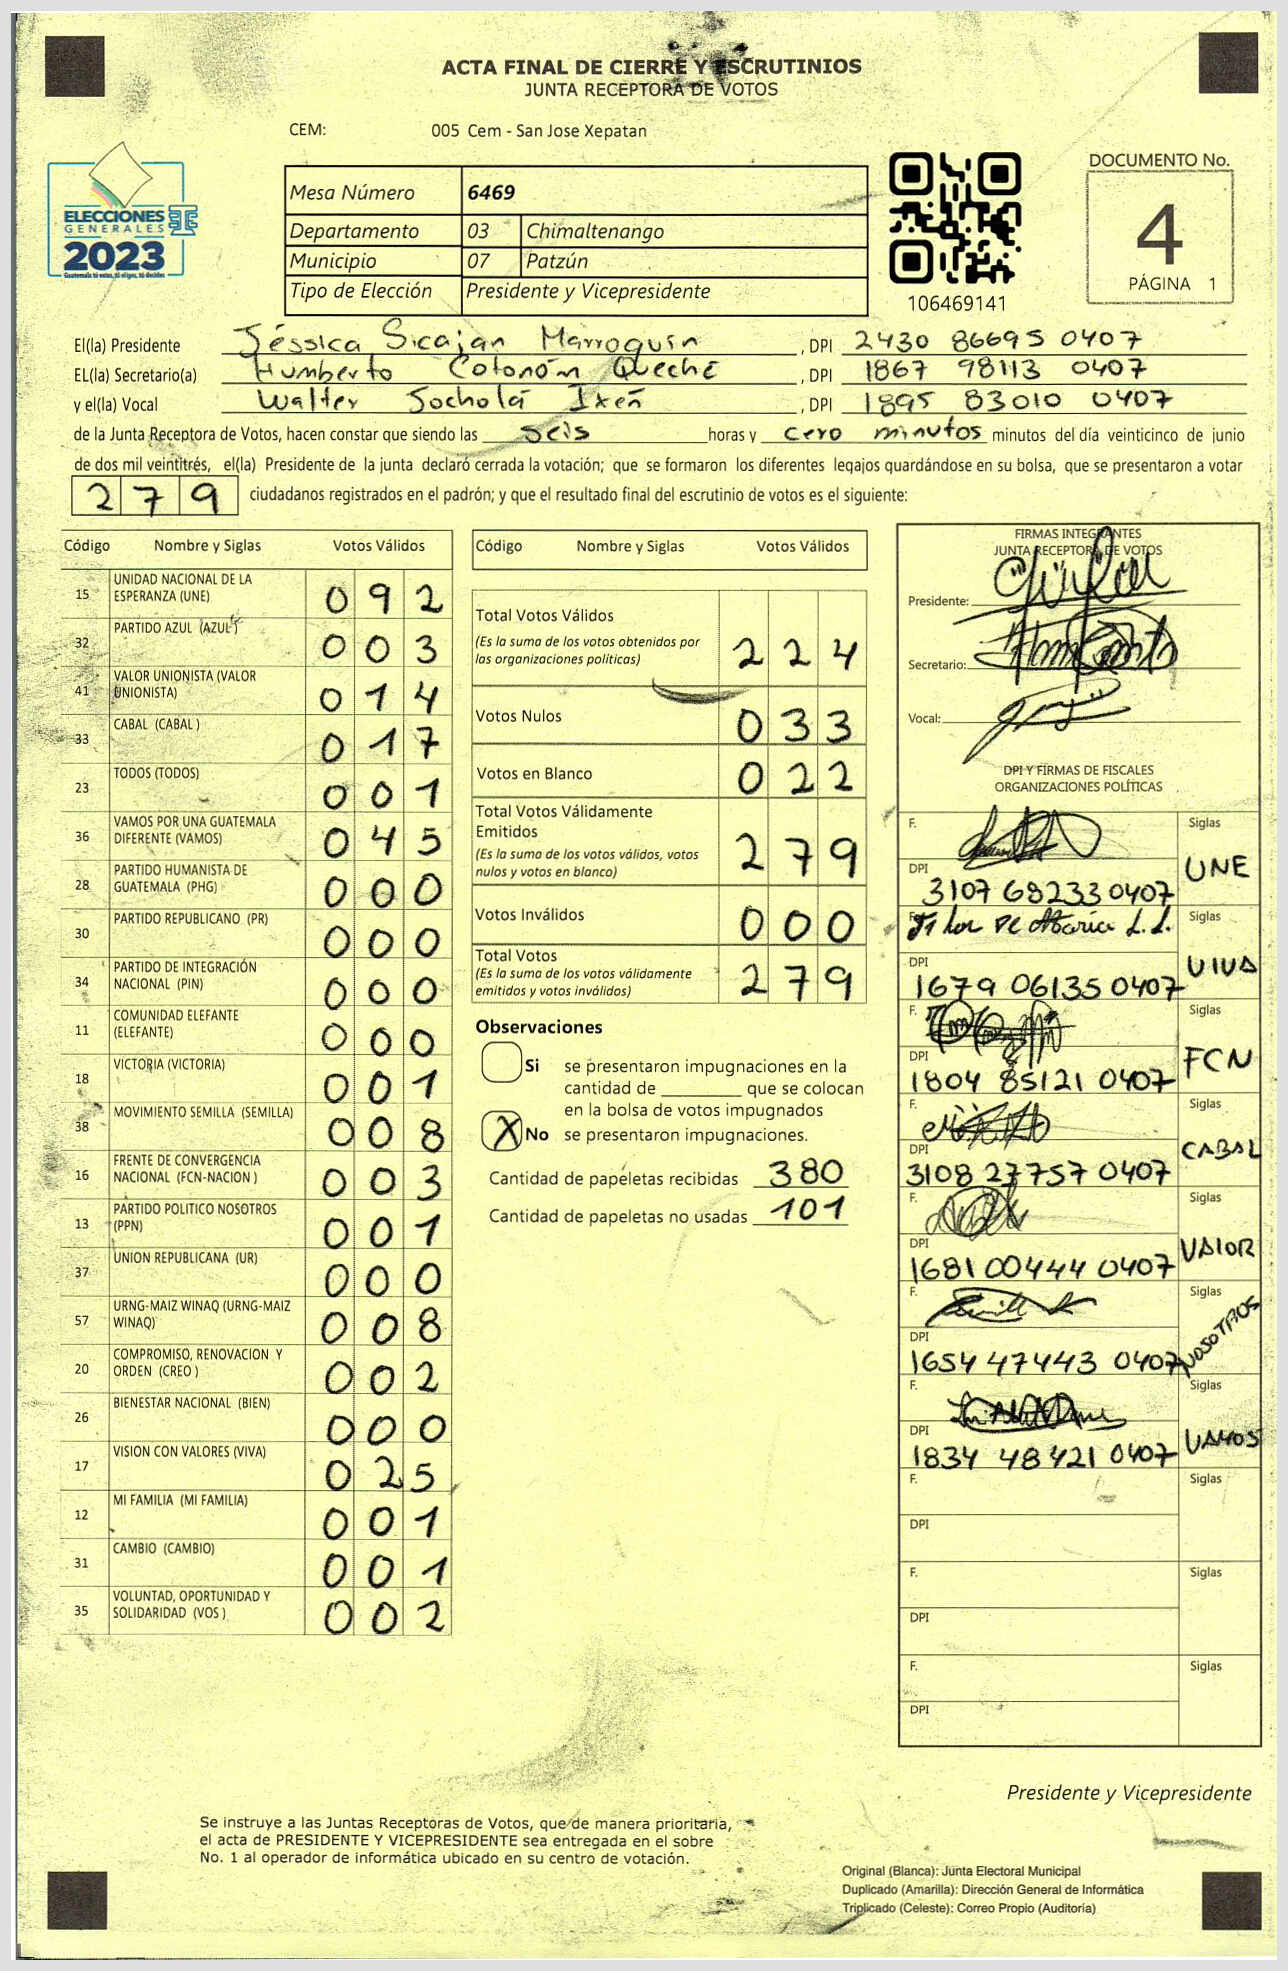 ACTA FINAL DE CIERRE Y ESCRUTINIOS
JUNTA RECEPTORA DE VOTOS
CEM: 005 Cem - San Jose Xepatan
ELECCIONES
GENERALES
2023
Guatemala tú votas, tú eliges, tú decides
Mesa Número 6469
Departamento 03 Chimaltenango
Municipio 07 Patzún
Tipo de Elección Presidente y Vicepresidente
106469141
DOCUMENTO No.
4
PÁGINA 1
El(la) Presidente Jéssica Sicajan Marroquín , DPI 2430 86695 0407
EL(la) Secretario(a) Humberto Cotonón Queché , DPI 1867 98113 0407
y el(la) Vocal Walter Jocholá Ixén , DPI 1895 83010 0407
de la Junta Receptora de Votos, hacen constar que siendo las seis horas y cero minutos minutos del día veinticinco de junio
de dos mil veintitrés, el(la) Presidente de la junta declaró cerrada la votación; que se formaron los diferentes legajos guardándose en su bolsa, que se presentaron a votar
279 ciudadanos registrados en el padrón; y que el resultado final del escrutinio de votos es el siguiente:
Código Nombre y Siglas Votos Válidos
15 UNIDAD NACIONAL DE LA ESPERANZA (UNE) 092
32 PARTIDO AZUL (AZUL) 003
41 VALOR UNIONISTA (VALOR UNIONISTA) 014
33 CABAL (CABAL ) 017
23 TODOS (TODOS) 001
36 VAMOS POR UNA GUATEMALA DIFERENTE (VAMOS) 045
28 PARTIDO HUMANISTA DE GUATEMALA (PHG) 000
30 PARTIDO REPUBLICANO (PR) 000
34 PARTIDO DE INTEGRACIÓN NACIONAL (PIN) 000
11 COMUNIDAD ELEFANTE (ELEFANTE) 000
18 VICTORIA (VICTORIA) 001
38 MOVIMIENTO SEMILLA (SEMILLA) 008
16 FRENTE DE CONVERGENCIA NACIONAL (FCN-NACION ) 003
13 PARTIDO POLITICO NOSOTROS (PPN) 001
37 UNION REPUBLICANA (UR) 000
57 URNG-MAIZ WINAQ (URNG-MAIZ WINAQ) 008
20 COMPROMISO, RENOVACION Y ORDEN (CREO ) 002
26 BIENESTAR NACIONAL (BIEN) 000
17 VISION CON VALORES (VIVA) 025
12 MI FAMILIA (MI FAMILIA) 001
31 CAMBIO (CAMBIO) 001
35 VOLUNTAD, OPORTUNIDAD Y SOLIDARIDAD (VOS ) 002
Código Nombre y Siglas Votos Válidos
Total Votos Válidos
(Es la suma de los votos obtenidos por
las organizaciones políticas) 224
Votos Nulos 033
Votos en Blanco 022
Total Votos Válidamente
Emitidos
(Es la suma de los votos válidos, votos
nulos y votos en blanco) 279
Votos Inválidos 000
Total Votos
(Es la suma de los votos válidamente
emitidos y votos inválidos) 279
Observaciones
Si se presentaron impugnaciones en la
cantidad de ________ que se colocan
en la bolsa de votos impugnados
X No se presentaron impugnaciones.
Cantidad de papeletas recibidas 380
Cantidad de papeletas no usadas 101
FIRMAS INTEGRANTES
JUNTA RECEPTORA DE VOTOS
Presidente:
Secretario:
Vocal:
DPI Y FIRMAS DE FISCALES
ORGANIZACIONES POLÍTICAS
F. Siglas
DPI 3107 68233 0407 UNE
F. Siglas
DPI 1679 06135 0407 VIVA
F. Siglas
DPI 1804 85121 0407 FCN
F. Siglas
DPI 3108 27757 0407 CABAL
F. Siglas
DPI 1681 00444 0407 VALOR
F. Siglas
DPI 1654 47443 0407 NOSOTROS
F. Siglas
DPI 1834 48421 0407 VAMOS
F. Siglas
DPI
F. Siglas
DPI
F. Siglas
DPI
Presidente y Vicepresidente
Se instruye a las Juntas Receptoras de Votos, que de manera prioritaria,
el acta de PRESIDENTE Y VICEPRESIDENTE sea entregada en el sobre
No. 1 al operador de informática ubicado en su centro de votación.
Original (Blanca): Junta Electoral Municipal
Duplicado (Amarilla): Dirección General de Informática
Triplicado (Celeste): Correo Propio (Auditoría)